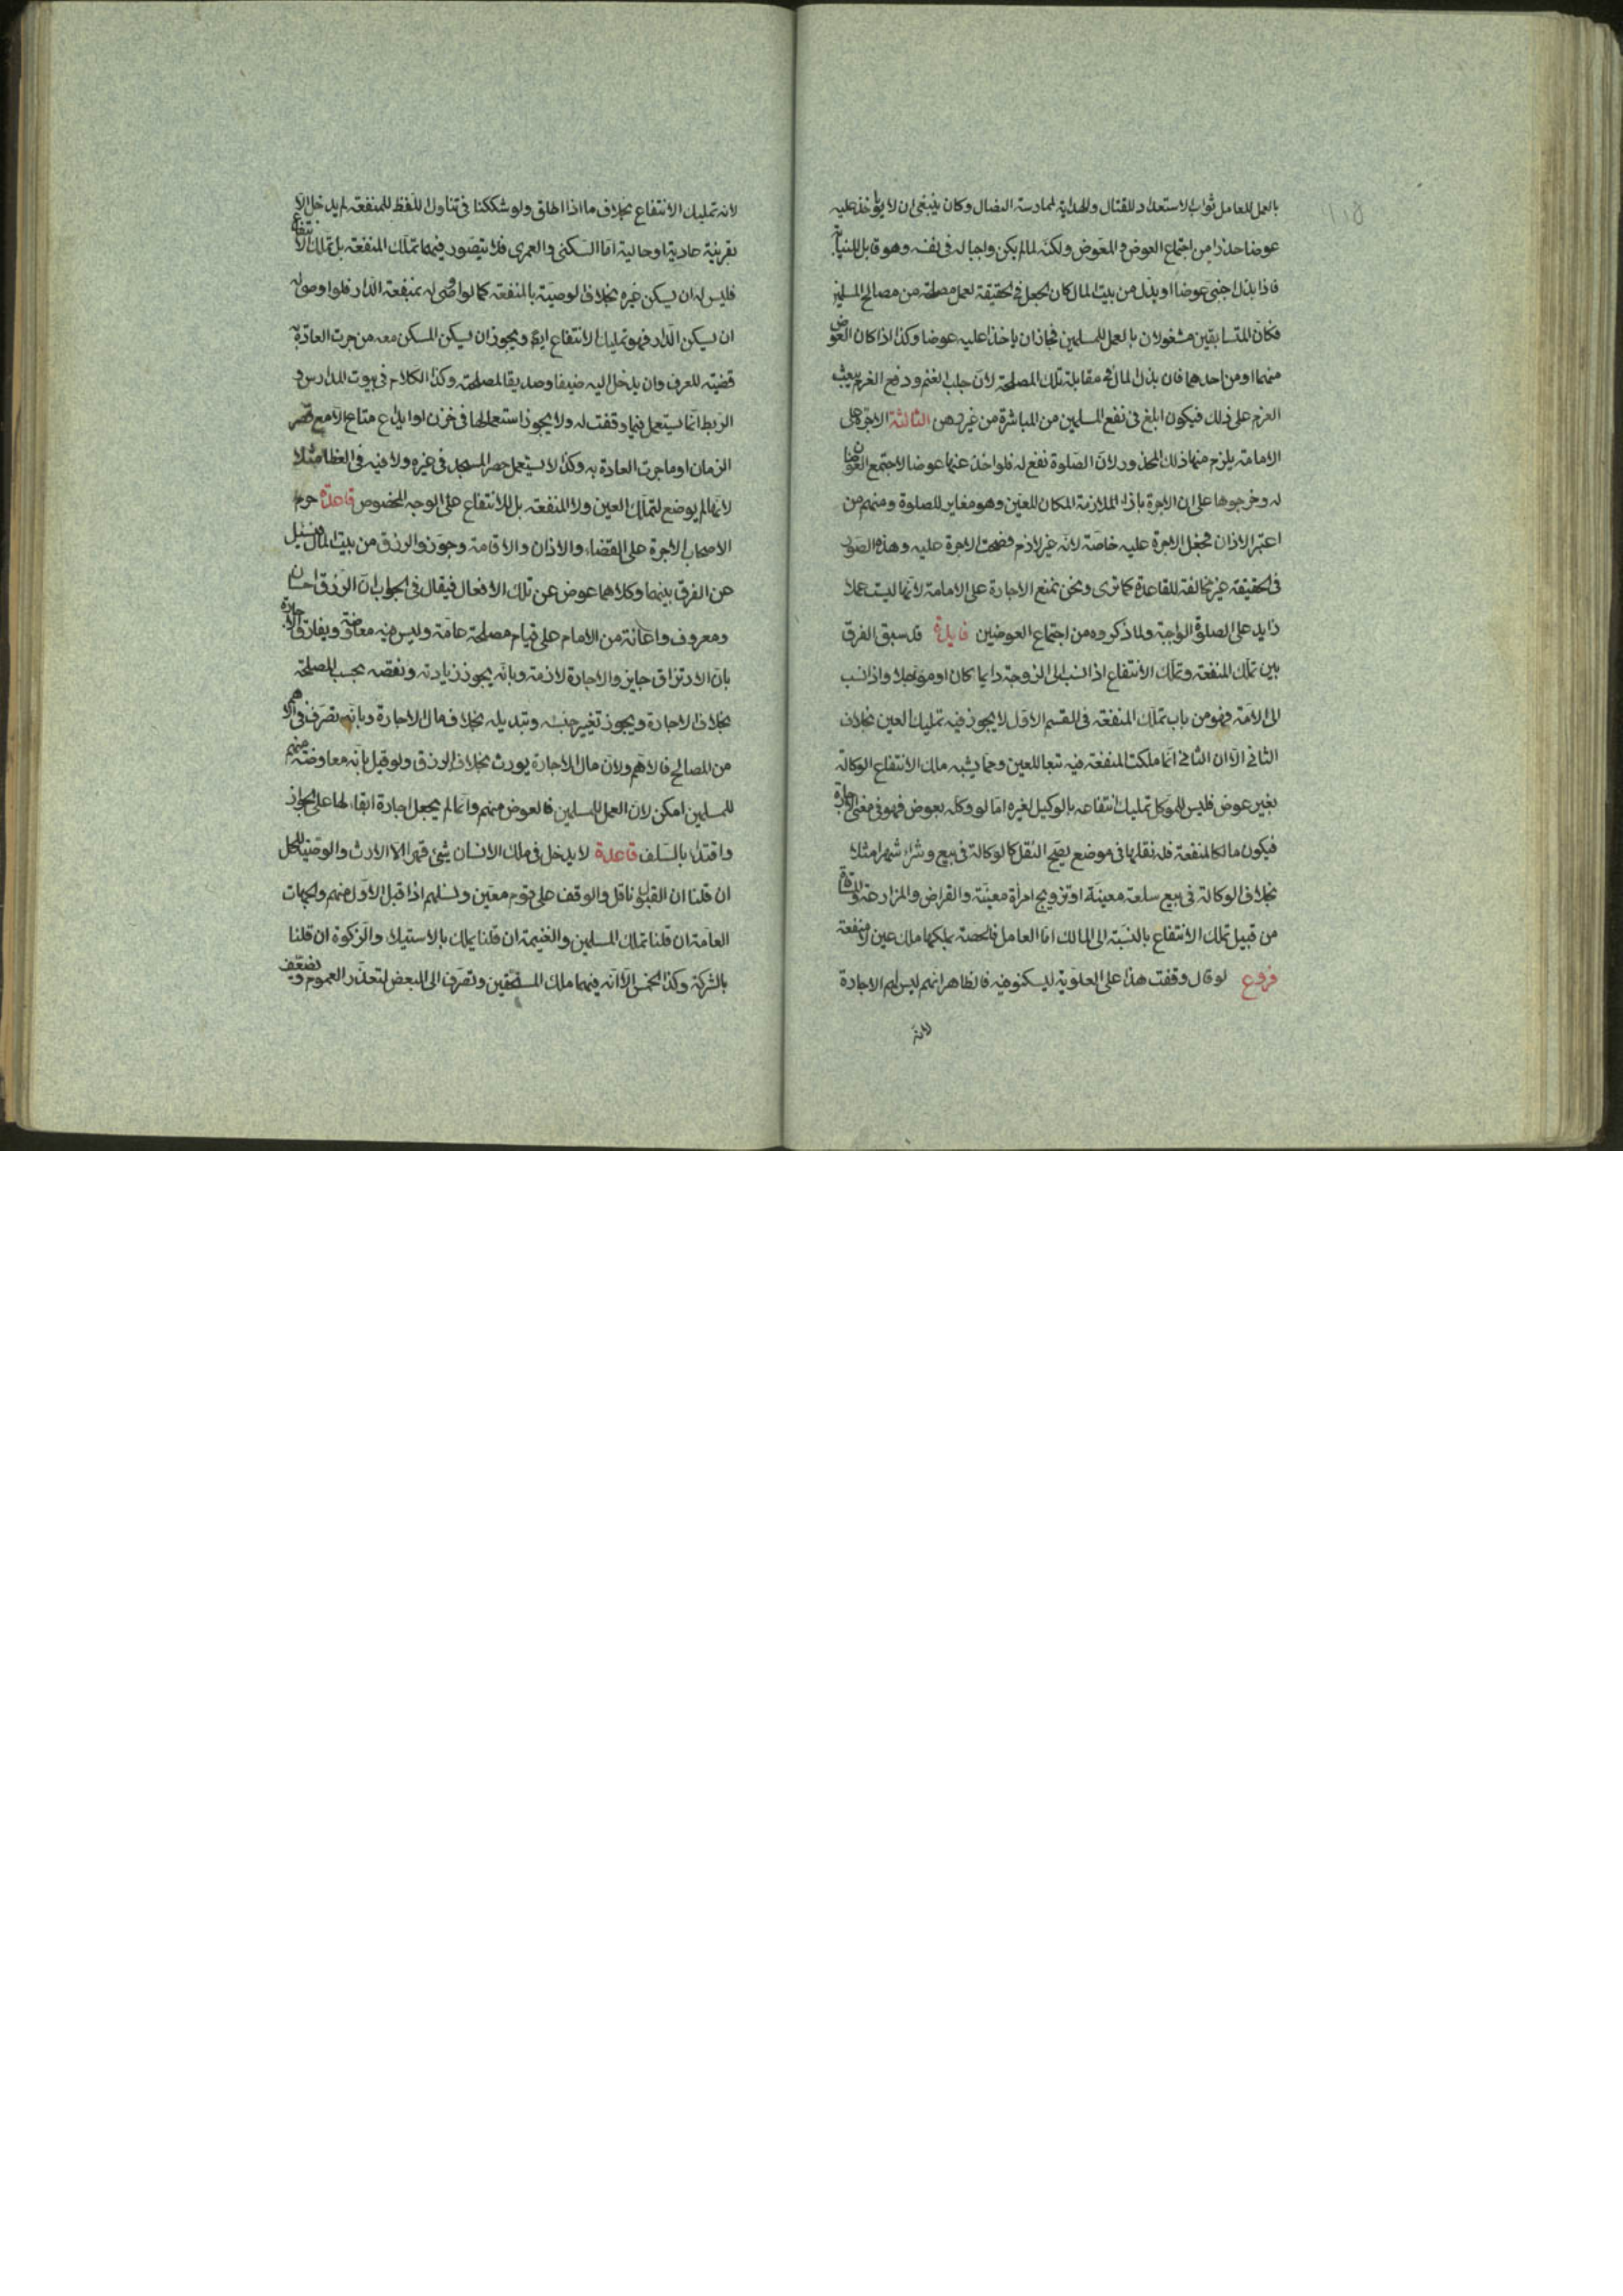 ١١٥
بالعمل للعامل ثواب الاستعداد للقتال والهداية لممارسة النضال وكان ينبغى ان لا يؤخذ عليه
عوضا حذرا من اجتماع العوض والمعوض ولكنه لما لم يكن واجبا له فى نفسه وهو قابل للنيابة
فاذا بذل اجنبى عوضا او بذل من بيت المال كان الجعل فى الحقيقة لعمل مصلحة من مصالح المسلمين
فكان المتسابقين مشغولان بالعمل للمسلمين فجاز ان ياخذا عليه عوضا وكذا اذا كان العوض
منهما او من احدهما فان بذل المال فى مقابلة تلك المصلحة لان جلب الغنم ودفع الغرم يبعث
العزم على ذلك فيكون ابلغ فى نفع المسلمين من المباشرة من غير رهن الثالثة الاجرة على
الامامة يلزم منها ذلك المحذور لان الصلوة نفع له فلو اخذ عنها عوضا لاجتمع العوضان
له وخرجوها على ان الاجرة بازاء الملازمة المكان للعين وهو مغاير للصلوة ومنهم من
اعتبر الاذان فجعل الاجرة عليه خاصة لانه غير لازم فصحت الاجرة عليه وهذه الصور
فى الحقيقة غير مخالفة للقاعدة كما ترى ونحن نمنع الاجارة على الامامة لانها ليست عملا
زايد على الصلوة الواجبة ولما ذكروه من اجتماع العوضين فايدة قد سبق الفرق
بين تملك المنفعة وتملك الانتفاع اذا نسب الى الزوجة دايما كان او مؤجلا واذا نسب
الى الامة فهو من باب تملك المنفعة فى القسم الاول لا يجوز فيه تمليك العين بخلاف
الثانى الا ان الثانى انما ملكت المنفعة فيه تبعا للعين ومما يشبه ملك الانتفاع الوكالة
بغير عوض فليس للموكل تمليك انتفاعه بالوكيل لغيره اما لو وكله بعوض فهو فى معنى الاجارة
فيكون مالكا لمنفعة فله نقلها فى موضع يصح النقل كالوكالة فى بيع وشراء شهرا مثلا
بخلاف الوكالة فى بيع سلعة معينة او تزويج امراة معينة والقراض والمزارعة والمساقاة
من قبيل تملك الانتفاع بالنسبة الى المالك اما العامل فالحصة يملكها ملك عين لا منفعة
فروع لو قال وقفت هذا على العلوية ليسكنوا فيه فالظاهر انهم ليس لهم الاجارة
لانه
لانه تمليك الانتفاع بخلاف ما اذا اطلق ولو شككنا فى تناول اللفظ للمنفعة لم يدخل الا
بقرينة عادية او حالية اما السكنى والعمرى فلا يتصور فيهما تملك المنفعة بل تملك الانتفاع
فليس له ان يسكن غيره بخلاف الوصية بالمنفعة كما لو اوصى له بمنفعة الدار فلو اوصى له
ان يسكن الدار فهو تمليك الانتفاع ايضا ويجوز ان يسكن المسكن معه من جرت العادة به
قضية للعرف وان يدخل اليه ضيفا وصديقا لمصلحة وكذا الكلام فى بيوت المدارس و
الربط انما يستعمل فيما وقفت له ولا يجوز استعمالها فى خزن او ايداع متاع الا مع قصر
الزمان او ما جرت العادة به وكذا لا يستعمل حصر المسجد فى غيره ولا فيه فى الغطاء مثلا
لانها لم يوضع لتملك العين ولا المنفعة بل للانتفاع على الوجه المخصوص قاعدة حرم
الاصحاب الاجرة على القضاء والاذان والاقامة وجوزوا الرزق من بيت المال فسئل
عن الفرق بينهما وكلاهما عوض عن تلك الافعال فيقال فى الجواب ان الرزق احسان
ومعروف واعانة من الامام على قيام مصلحة عامة وليس فيه معاوضة ويفارق الاجارة
بان الارتزاق جايز والاجارة لازمة وبانه يجوز زيادته ونقصه بحسب المصلحة
بخلاف الاجارة ويجوز تغيير جنسه وتبديله بخلاف مال الاجارة وبانه تصرف فى الاهم
من المصالح فالاهم ولان مال الاجارة يورث بخلاف الرزق ولو قيل بانه معاوضة منهم
للمسلمين امكن لان العمل للمسلمين فالعوض منهم وانما لم يجعل اجارة ابقاء لها على الجواز
واقتداء بالسلف قاعدة لا يدخل فى ملك الانسان شئ قهرا الا الارث والوصية للحمل
ان قلنا ان القبول ناقل والوقف على قوم معين ونسلهم اذا قبل الاول منهم والجهات
العامة ان قلنا تملك المسلمين والغنيمة ان قلنا يملك بالاستيلاء والزكوة ان قلنا
بالشركة وكذا الخمس الا انه فيهما ملك المستحقين وتصرف الى البعض لتعذر العموم ويضعف